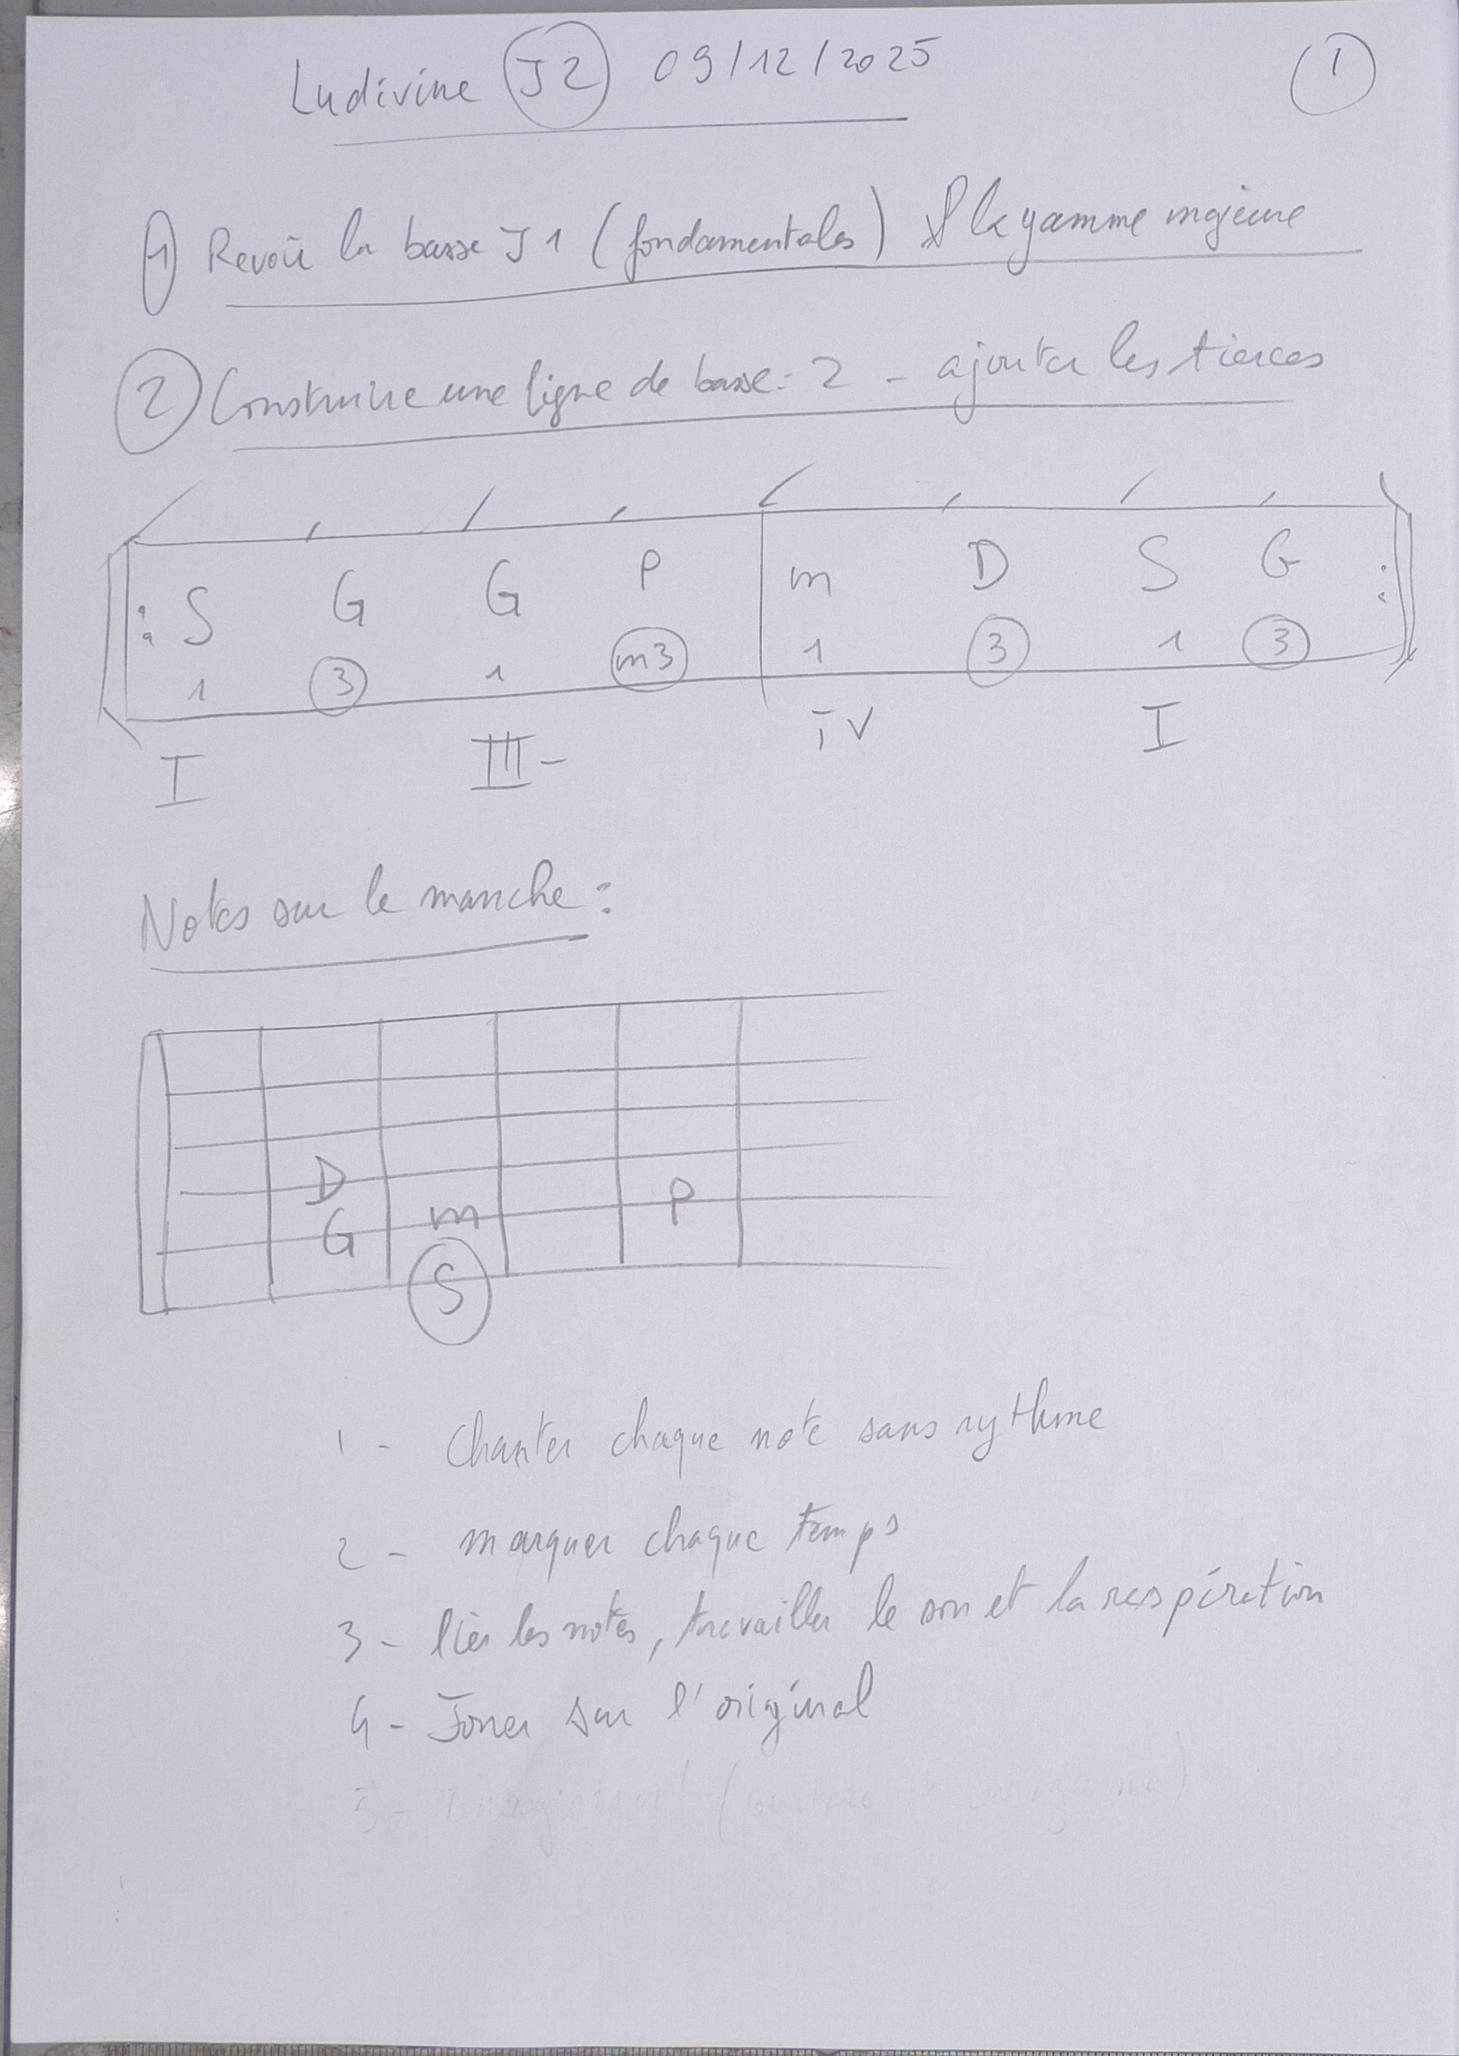 Ludivine J2 09/12/2025
1
1 Revoir la basse J1 (fondamentales) & la gamme majeure
2 Construire une ligne de basse : 2 - ajouter les tierces
: S G G P m D S G :
1 3 1 m3 1 3 1 3
I III- IV I
Notes sur le manche :
D
G m P
S
1 - Chanter chaque note sans rythme
2 - marquer chaque temps
3 - lier les notes, travailler le son et la respiration
4 - Jouer sur l'original
5 -